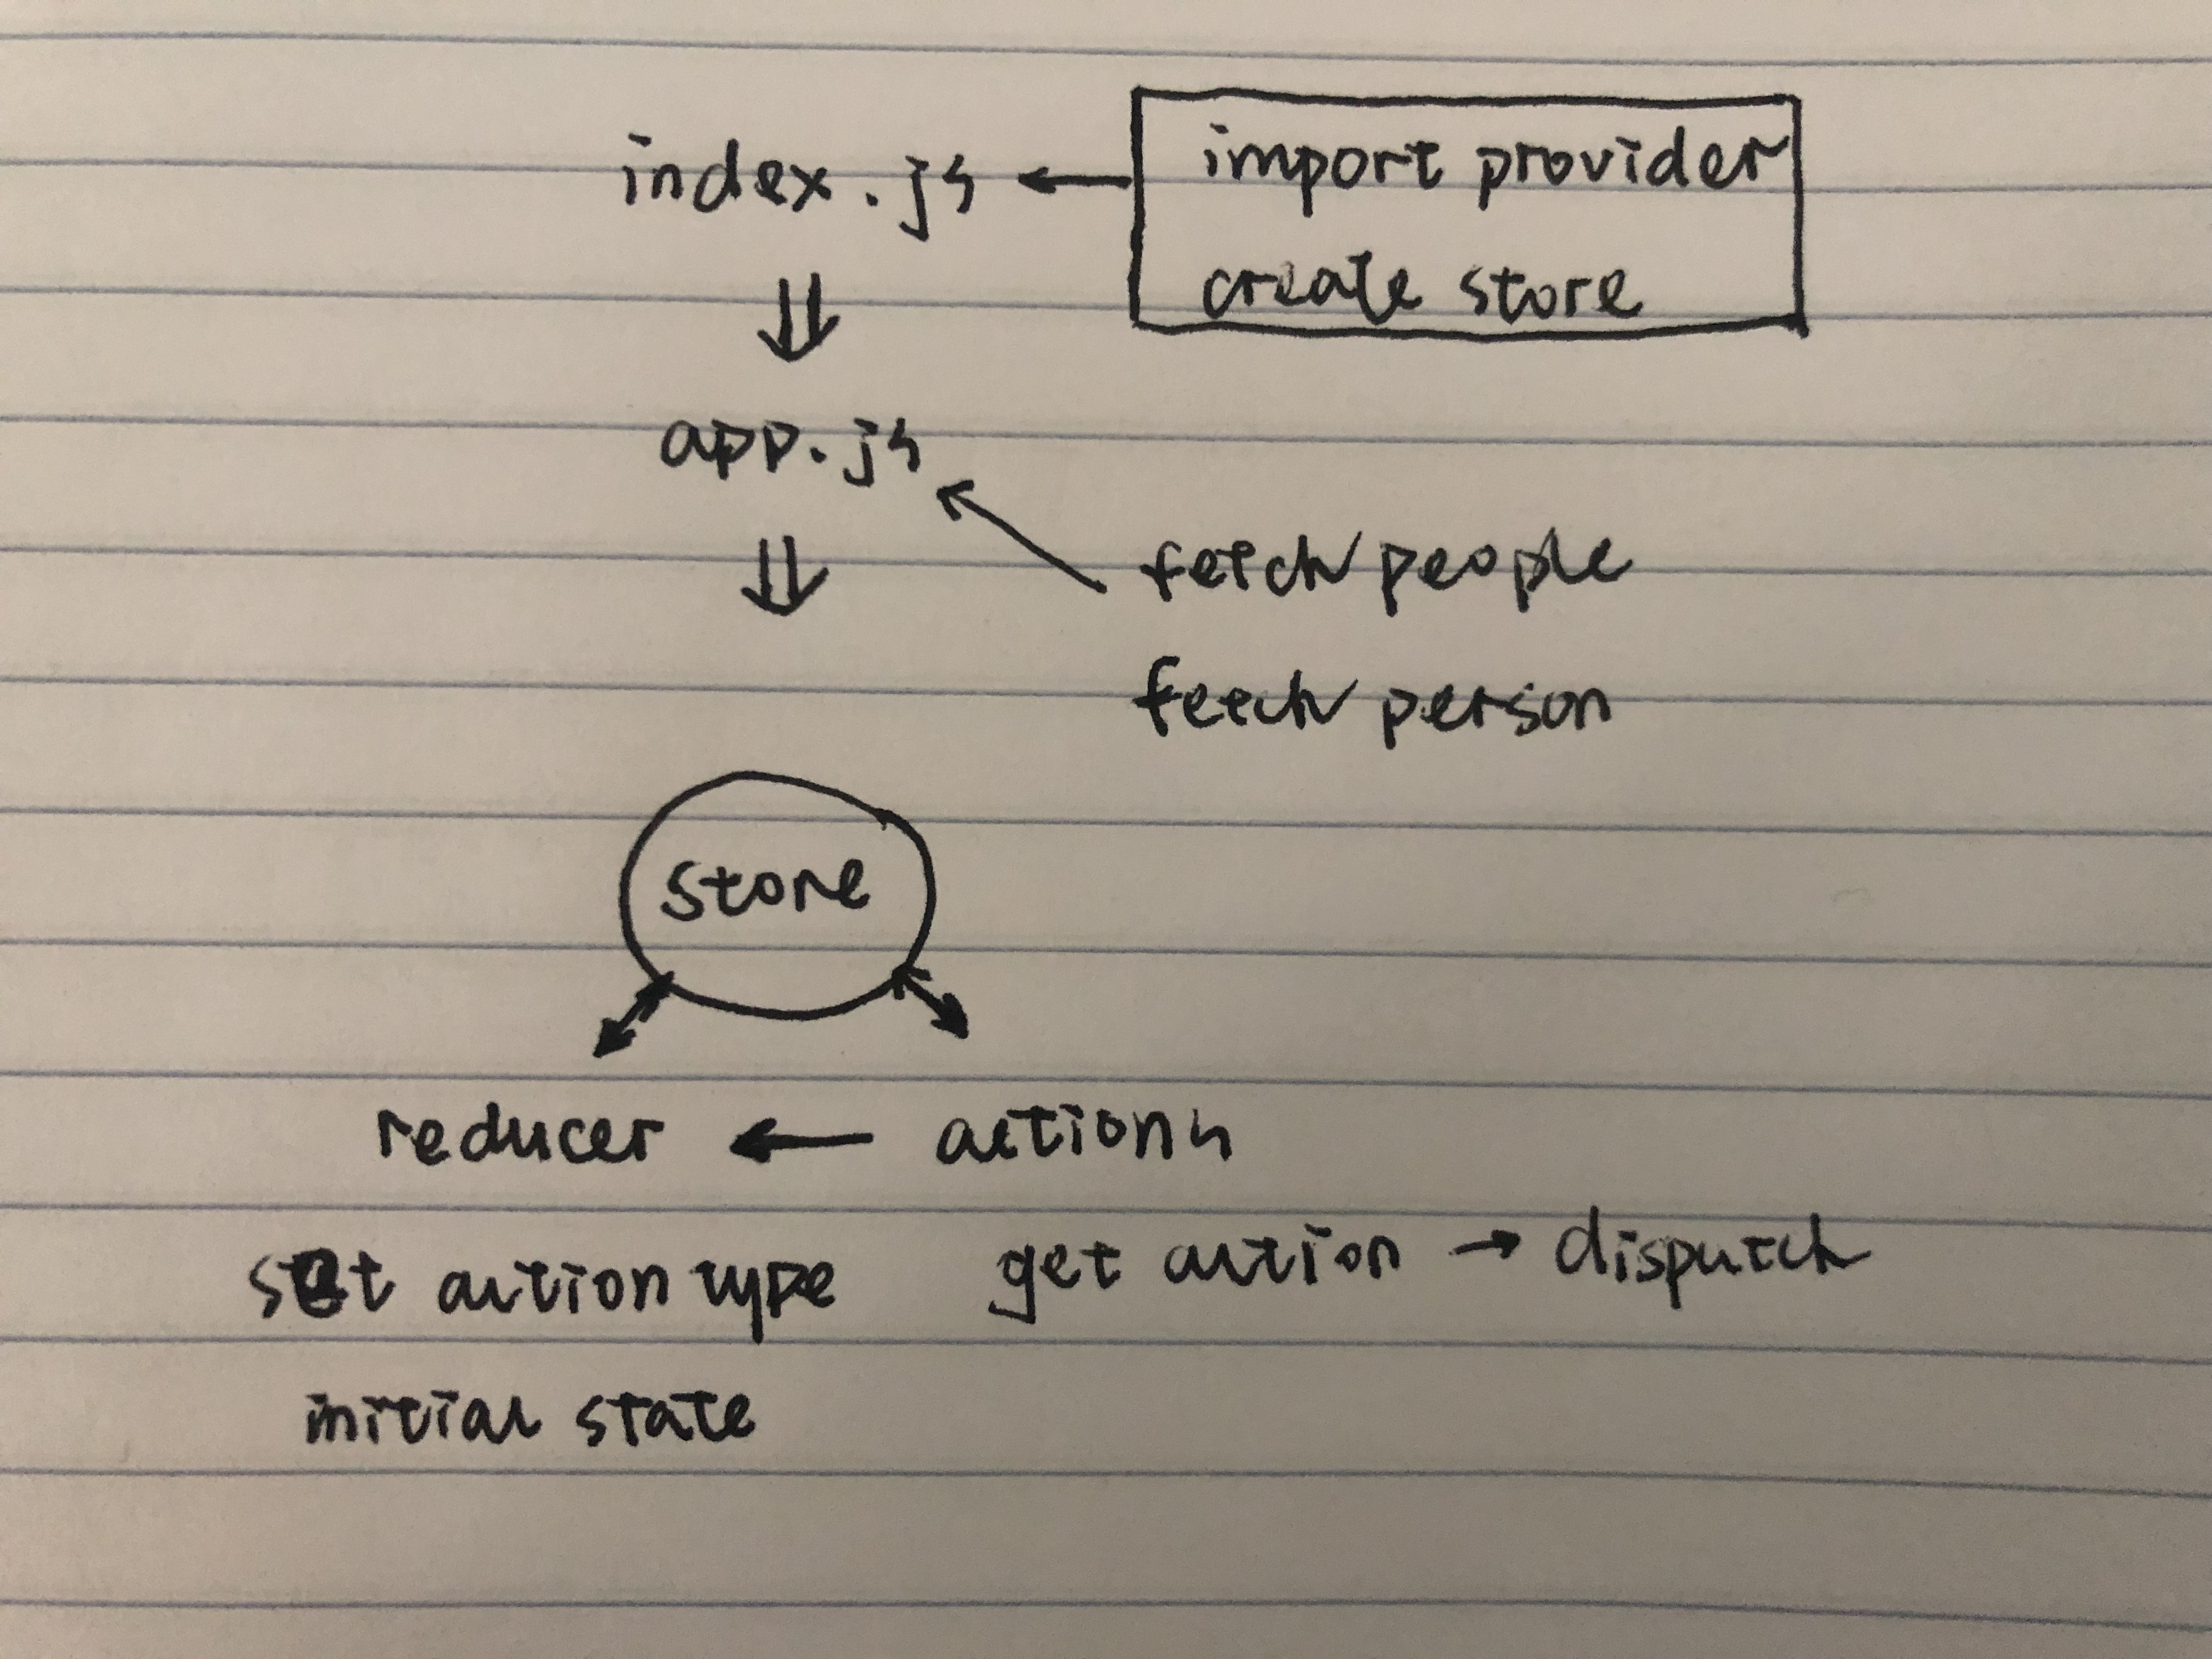 index.js ← import provider
create store
⇓
app.js
⇓
fetch people
fetch person
store
reducer ← actions
set action type
get action → dispatch
initial state